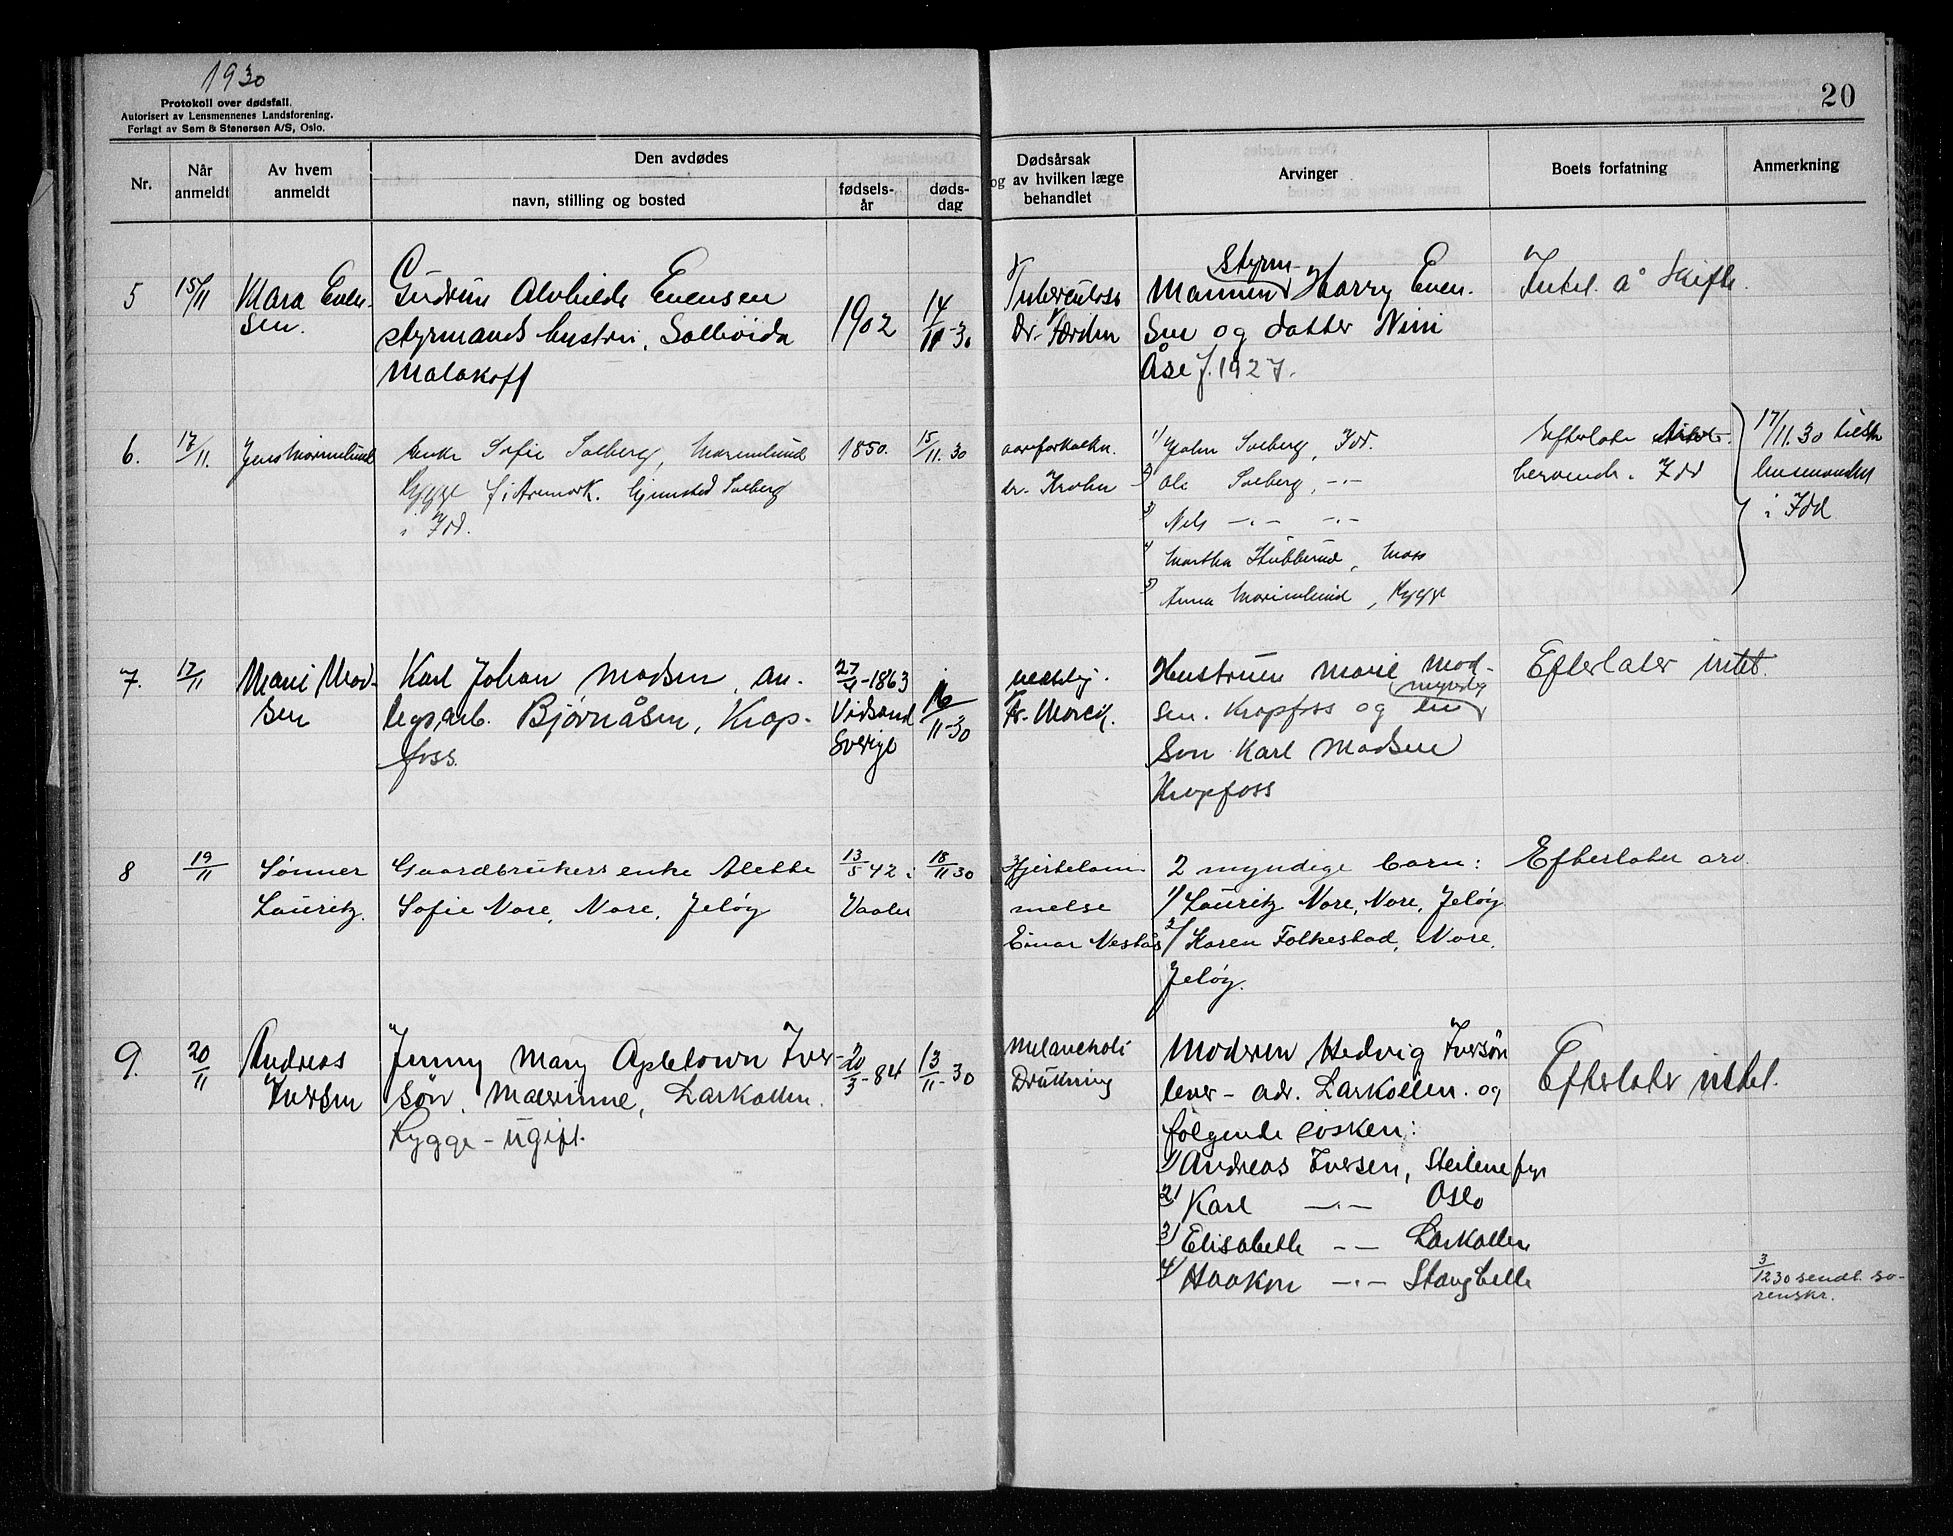 1930
Protokoll over dødsfall.
Autorisert av Lensmennenes Landsforening.
Forlagt av Sem & Stenersen A/S, Oslo.
20
Nr.
Når anmeldt
Av hvem anmeldt
Den avdødes
navn, stilling og bosted
fødsels-år
døds-dag
Dødsårsak og av hvilken læge behandlet
Arvinger
Boets forfatning
Anmerkning
5
15/11
Klara Even-
sen.
Gudrun Alvhilde Evensen
styrmands hustru, Sollivida
Malakoff
1902
14/11-30
Tuberculose
Dr. Færden
styrm-
Mannen Harry Even-
sen og datter Nini
Åse f. 1927.
Intet å skifte.
6.
17/11.
Jens Marimlund
enke Sofie Solberg, Marimlund
Rygge f. i Aremark. Hjemsted Solberg
i Idd.
1850.
15/11.30
aareforkalkn.
dr. Krohn
1/ John Solberg, Idd.
2/ Ole Solberg, -"-
3/ Nils -"- -"-
4/ Martha Stubberud, Moss
5/ Anna Marimlund, Rygge
Efterlater
beroende i Idd
17/11.30 tilskr
lensmanden
i Idd
7.
17/11
Marie Mad-
sen
Karl Johan Madsen, an-
legsarb. Bjørnåsen, Krap-
foss.
27/4-1863
Vidsand
Sverige
16/11-30
Dr. Moreck.
Hustruen Marie Mad-
sen. Krapfoss og en
myndig
søn Karl Madsen
Krapfoss
Efterlater intet.
8
19/11
Sønner
Lauritz.
Gaardbrukers enke Alette
Sofie Nore, Nore, Jeløy
13/5 42 i
Vaaler
18/11 30
Hjertelam-
melse
Einar Nestås
2 myndige barn:
1/ Lauritz Nore, Nore, Jeløy
2/ Karen Folkestad, Nore,
Jeløy.
Efterlater arv
9.
20/11
Andreas
Iversen
Jenny Mary Apletown Iver-
søn, Maerinne, Larkollen.
Rygge - ugift.
20/3-84
13/11-30
Melancholi
Drukning
Moderen Hedvig Iversøn
lever - adr. Larkollen. og
følgende søsken:
1) Andreas Iversen, Steilene fyr
2) Karl -"- Oslo
3) Elisabeth -"- Larkollen
4) Haakon -"- Slangbelle
Efterlater intet.
3/12 30 sendt so-
renskr.